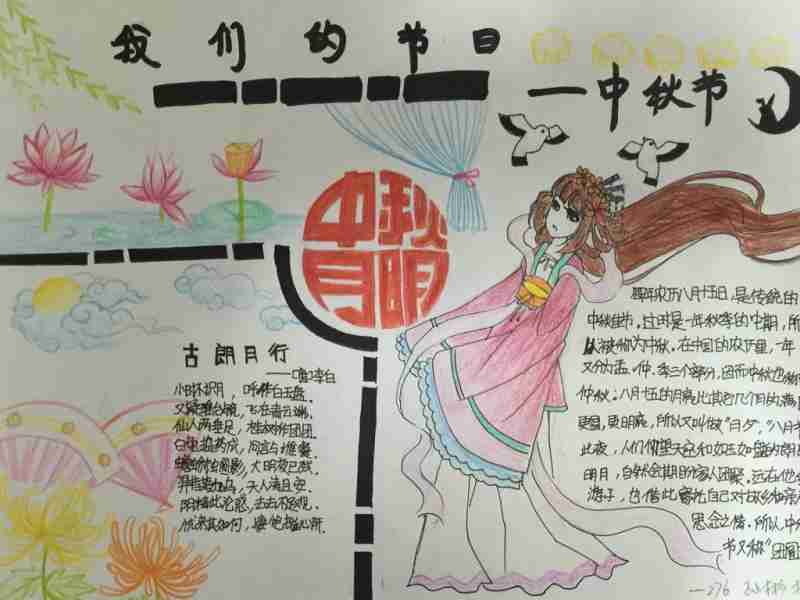 我们的节日
—中秋节
中秋
月明
古朗月行
——唐·李白
小时不识月，呼作白玉盘。
又疑瑶台镜，飞在青云端。
仙人垂两足，桂树作团团。
白兔捣药成，问言与谁餐
蟾蜍蚀圆影，大明夜已残。
羿昔落九乌，天人清且安。
阴精此沦惑，去去不足观。
忧来其如何，凄怆摧心肝。
每年农历八月十五日，是传统的
中秋佳节。这时是一年秋季的中期，所
以被称为中秋。在中国的农历里，一年
又分为孟、仲、季三个部分，因而中秋也称
仲秋。八月十五的月亮比其他几个月的满月
更圆，更明亮，所以又叫做"月夕"，"八月
此夜，人们仰望天空如玉如盘的朗朗
明月，自然会期盼家人团聚。远在他乡
游子，也借此寄托自己对故乡和亲人
思念之情。所以，中秋
节又称"团圆
—276